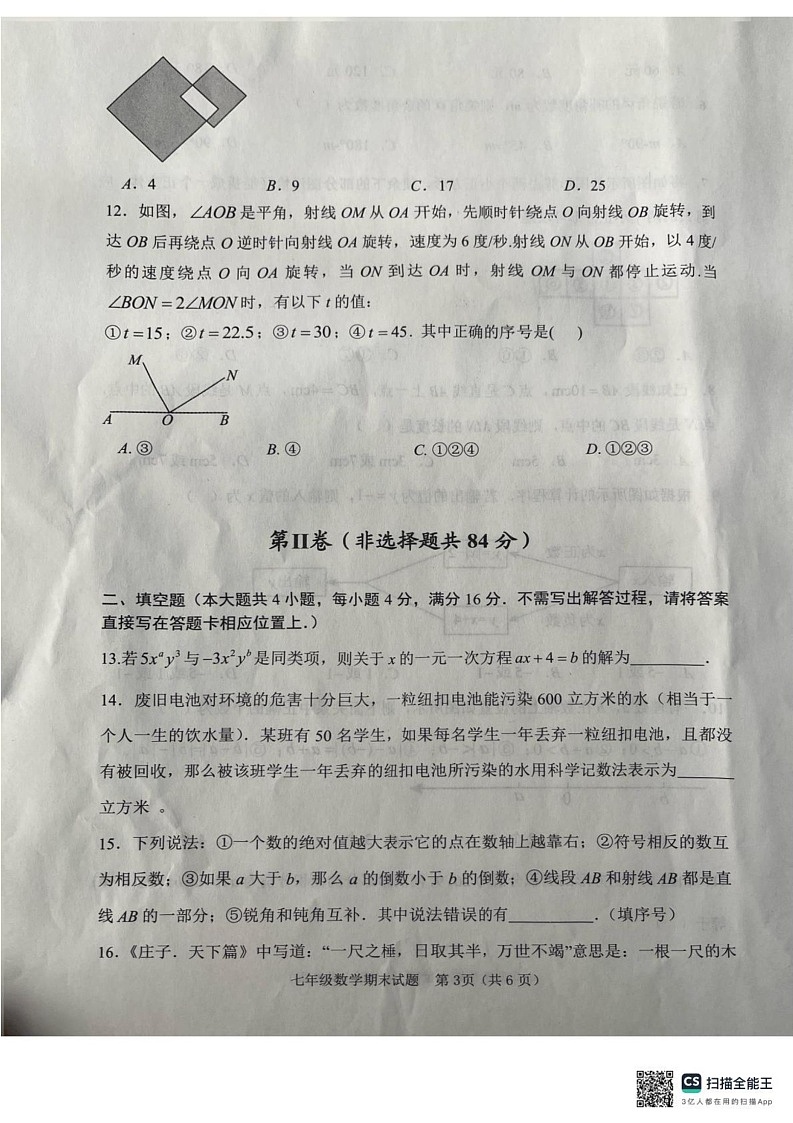 A．4 B．9 C．17 D．25
12．如图，∠AOB 是平角，射线 OM 从 OA 开始，先顺时针绕点 O 向射线 OB 旋转，到
达 OB 后再绕点 O 逆时针向射线 OA 旋转，速度为 6 度/秒.射线 ON 从 OB 开始，以 4 度/
秒的速度绕点 O 向 OA 旋转，当 ON 到达 OA 时，射线 OM 与 ON 都停止运动.当
∠BON = 2∠MON 时，有以下 t 的值：
①t = 15；②t = 22.5；③t = 30；④t = 45. 其中正确的序号是( )
M
N
A O B
A. ③ B. ④ C. ①②④ D. ①②③
第II卷（非选择题共 84 分）
二、填空题（本大题共 4 小题，每小题 4 分，满分 16 分．不需写出解答过程，请将答案
直接写在答题卡相应位置上.）
13.若5xᵃy³与−3x²yᵇ是同类项，则关于 x 的一元一次方程ax + 4 = b 的解为________．
14．废旧电池对环境的危害十分巨大，一粒纽扣电池能污染 600 立方米的水（相当于一
个人一生的饮水量）．某班有 50 名学生，如果每名学生一年丢弃一粒纽扣电池，且都没
有被回收，那么被该班学生一年丢弃的纽扣电池所污染的水用科学记数法表示为______
立方米 。
15．下列说法：①一个数的绝对值越大表示它的点在数轴上越靠右；②符号相反的数互
为相反数；③如果 a 大于 b，那么 a 的倒数小于 b 的倒数；④线段 AB 和射线 AB 都是直
线 AB 的一部分；⑤锐角和钝角互补．其中说法错误的有_________．（填序号）
16.《庄子．天下篇》中写道：“一尺之棰，日取其半，万世不竭”意思是：一根一尺的木
七年级数学期末试题 第 3页（共 6 页）
CS 扫描全能王
3亿人都在用的扫描App